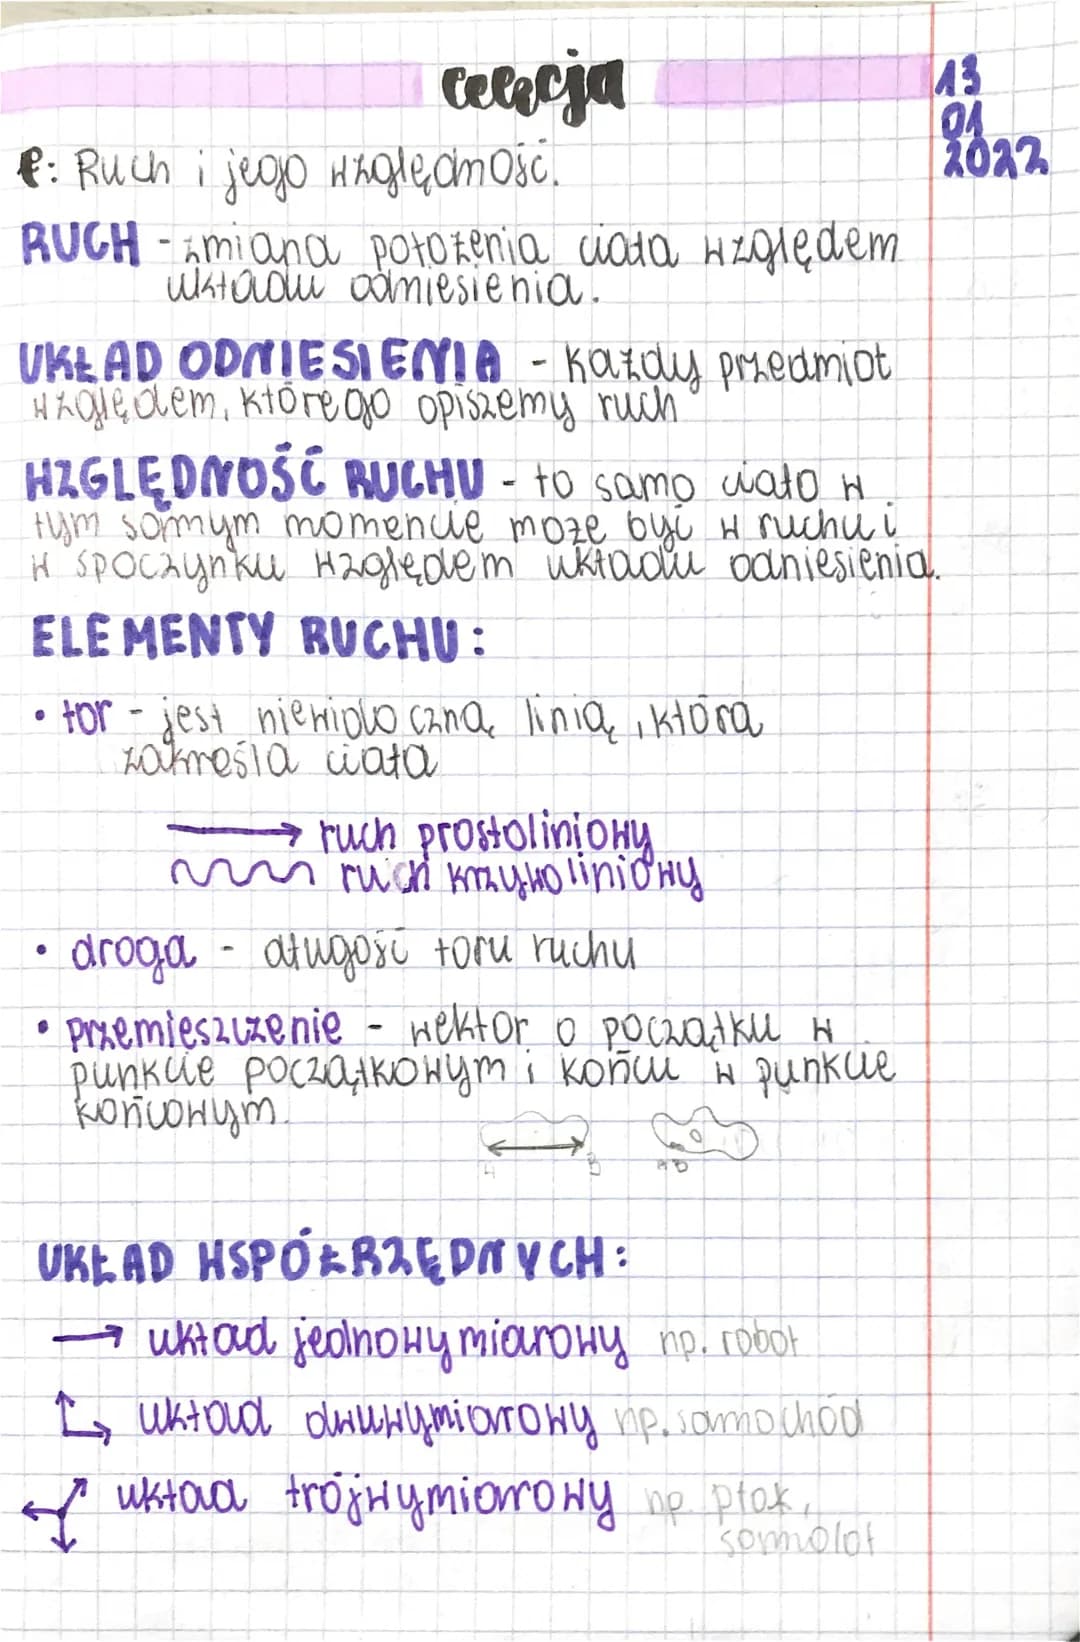 Lekcja
13
01
2022
T: Ruch i jego względność.
RUCH - zmiana położenia ciała względem
układu odniesienia.
UKŁAD ODNIESIENIA - każdy przedmiot
względem, którego opiszemy ruch
WZGLĘDNOŚĆ RUCHU - to samo ciało w
tym samym momencie może być w ruchu i
w spoczynku względem układu odniesienia.
ELEMENTY RUCHU:
• tor - jest niewidoczną linią, którą
zakreśla ciała
→ ruch prostoliniowy
ruch krzywoliniowy
• droga - długość toru ruchu
• przemieszczenie - wektor o początku w
punkcie początkowym i końcu w punkcie
końcowym.
A B AB
UKŁAD WSPÓŁRZĘDNYCH:
→ układ jednowymiarowy np. robot
układ dwuwymiarowy np. samochód
układ trójwymiarowy np. ptak,
samolot